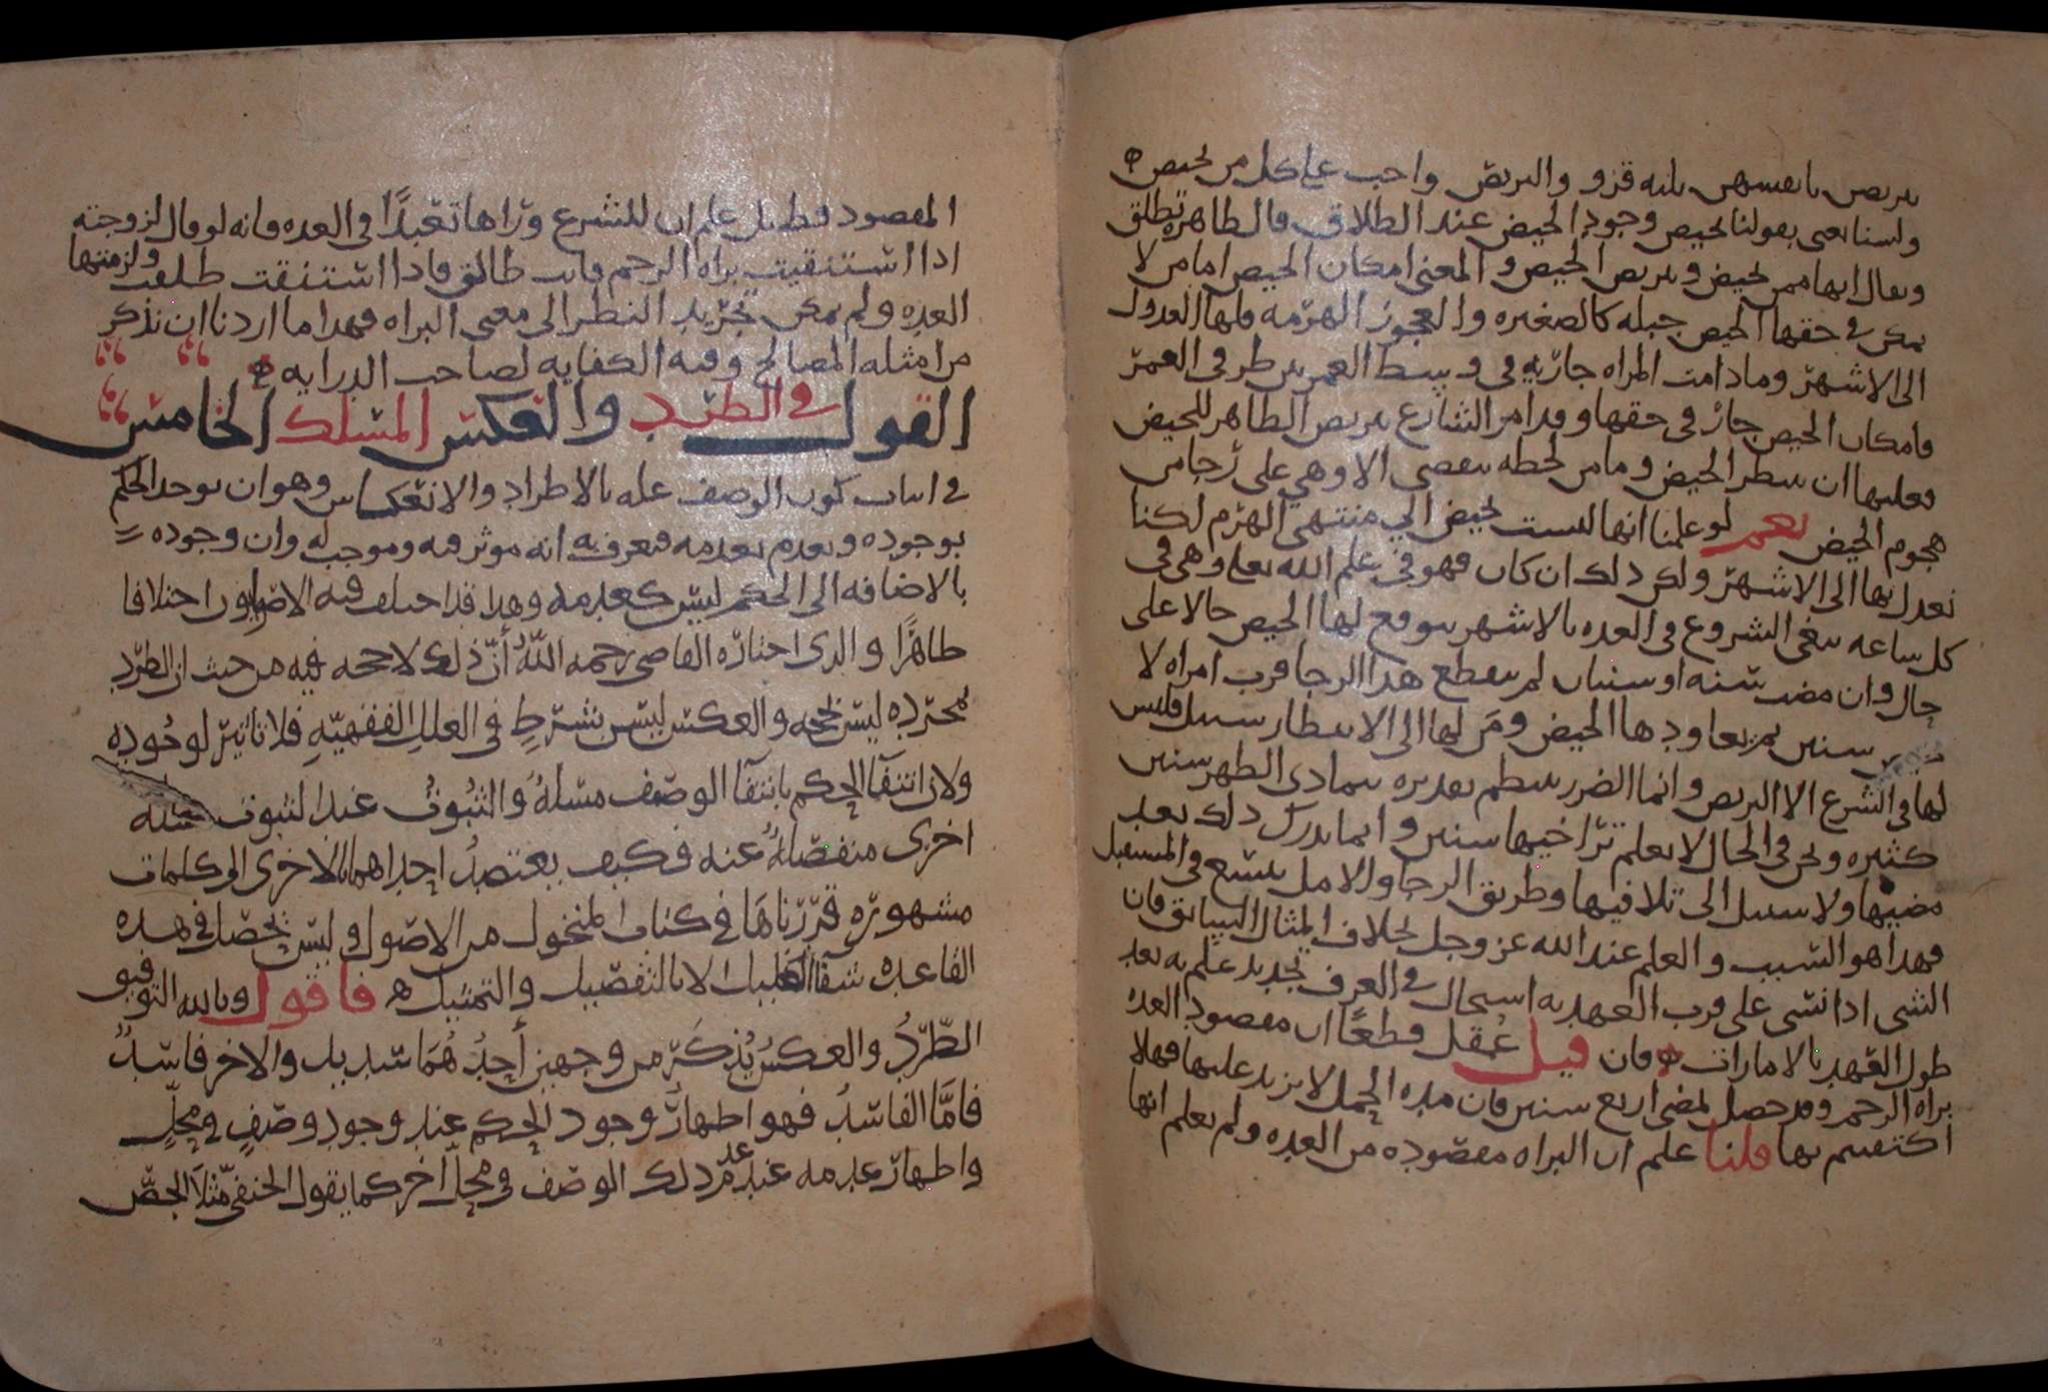 ىتربص بانفسهن ثلثه قرو والتربص واجب على كل من تحيض ه
ولسنا نعنى بقولنا تحيض وجود الحيض عند الطلاق فالطاهره تطلق
ويقال انها ممن تحيض وتتربص الحيض و المعنى امكان الحيص اما من لا
يمكن في حقها الحيص جبله كالصغيره والعجوز الهرمه فلها العدول
الى الاشهر ومادامت المراه جاريه في وسط العمر بين طرفى العمر
فامكان الحيص جار فى حقها وقد امر الشارع بتربص الطاهر للحيض
فعليها ان ينتظر الحيض وما من لحظه تنقضى الا وهي على رجا من
هجوم الحيض نعم لو علمنا انها ليست تحيض الي منتهى الهرم لكنا
نعدل بها الى الاشهر ولكن ذلك ان كان فهو في علم الله تعالى وهى فى
كل ساعه تبغى الشروع في العده بالاشهر يتوقع لها الحيض حالا على
حال وان مضت سنه او سنتان لم ينقطع هذا الرجا فرب امراه لا
سنين ثم يعاودها الحيض ومن لها الى الانتظار سبيل فليس
لها في الشرع الا التربص وانما الضرر ينتظم بعد تمادى الطهر سنين
كثيره ونحن فى الحال لا نعلم تراخيها سنين وانما ندرك ذلك بعد
مضيها ولا سبيل الى تلافيها وطريق الرجا والامل يتسع في المستقبل
فهذا هو السبب والعلم عند الله عز وجل بخلاف المثال السابق فان
الشى اذا نسى على قرب العهد به استحال في العرف تجديد علم به بعد
طول العهد بالامارات ه فان قيل عقل قطعًا ان مقصود العده
براه الرحم وقد حصل لمضى اربع سنين فان مده الحمل لا يزيد عليها فهلا
اكتفيتم بها قلنا علم ان البراه مقصوده من العده ولم يعلم انها
المقصود فقط بل علم ان للشرع وراها تعبدًا في العده فانه لو قال لزوجته
اذا استنقيت براه الرحم فانت طالق فاذا استنقت طلقت ولزمتها
العده ولم يمكن تجريد النظر الى معنى البراه فهذا ما اردنا ان نذكر
من امثله المصالح وفيه الكفايه لصاحب الدرايه ه
القول في الطرد والعكس المسلك الخامس
في اثبات كون الوصف عله بالاطراد والانعكاس وهو ان يوجد الحكم
بوجوده ويعدم بعدمه فيعرف به انه موثر فيه وموجب له وان وجوده
بالاضافه الى الحكم ليس كعدمه وهذا قد اختلف فيه الاصوليون اختلافا
ظاهرًا والذى اختاره القاضى رحمه اللهُ أنّ ذلك لا حجه فيه من حيث ان الطرد
بمجرده ليس بحجه والعكس ليس بشرطٍ في العلل الفقهيّهِ فلا تاثير لوجُودِه
ولان انتفآ الحكم بانتفآ الوصف مسلهٌ والثبُوتُ عند الثبوت مسله
اخرى منفصلهٌ عنه فكيف يعتضدُ احداهما بالاخرى الى كلمات
مشهوره قرّرناهَا في كتاب المنخول من الاصول وليس يحصل في هذه
القاعده شفآ الغليل الا بالتفصيل والتمثيل ه فاقول وبالله التوفيق
الطّردُ والعكسُ يُذكَر من وجهين أحدُهُمَا سديد والاخر فاسدٌ
فامَّا الفاسد فهو اظهار وجود الحكم عند وجود وصفٍ في محلٍّ
واظهار عدمه عند عدم ذلك الوصف في محلّ اخر كما يقول الحنفىّ مثلاً الجصّ